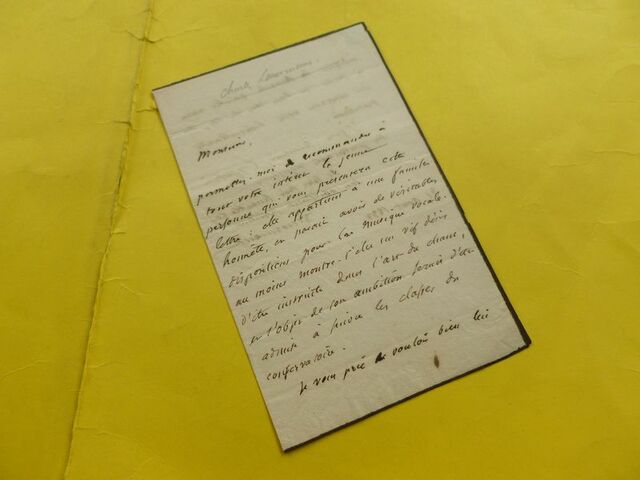 Monsieur,
permettez-moi de recommander à
tout votre intérêt la jeune
personne qui vous présentera cette
lettre : elle appartient à une famille
honnête, et paraît avoir de véritables
dispositions pour la musique vocale.
au moins montre-t'elle un vif désir
d'être instruite dans l'art du chant,
et l'objet de son ambition serait d'être
admise à suivre les classes du
conservatoire.
Je vous prie de vouloir bien lui